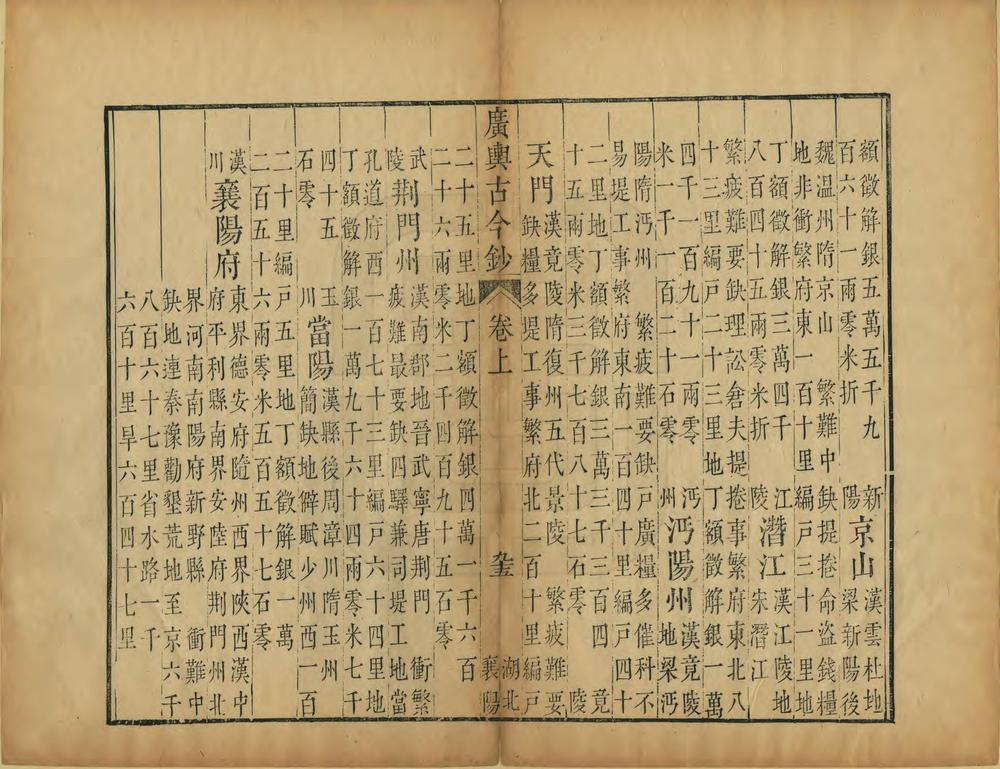 額徵解銀五萬五千九
百六十一兩零米折
新陽
京山
漢雲杜地
梁新陽後
魏溫州隋京山 繁難中缺提捲命盜錢糧
地非衝繁府東一百十里編戶三十一里地
丁額徵解銀三萬四千
八百四十五兩零米折
江陵
潛江
漢江陵地
宋潛江
繁疲難要缺理訟舍夫提捲事繁府東北八
十三里編戶二十三里地丁額徵解銀一萬
四千一百九十一兩零
米一千一百二十石零
沔州
沔陽州
漢竟陵
地梁沔
陽隋沔州 繁疲難要缺戶廣糧多催科不
易堤工事繁府東南一百四十里編戶四十
二里地丁額徵解銀三萬三千三百四
十五兩零米三千七百八十七石零
竟陵
天門
漢竟陵隋復州五代景陵 繁疲難要
缺糧多堤工事繁府北二百十里編戶
廣輿古今鈔 卷上 九五 湖北 襄陽
二十五里地丁額徵解銀四萬一千六百
二十六兩零米二千四百九十五石零
武陵
荆門州
漢南郡地晉武寧唐荆門 衝繁
疲難最要缺四驛兼司堤工地當
孔道府西一百七十三里編戶六十四里地
丁額徵解銀一萬九千六十四兩零米七千
四十五
石零
玉川
當陽
漢縣後周漳川隋玉州
簡缺地僻賦少州西一百
二十里編戶五里地丁額徵解銀一萬
二百五十六兩零米五百五十七石零
漢川
襄陽府
東界德安府隨州西界陝西漢中
府平利縣南界安陸府荆門州北
界河南南陽府新野縣 衝難中
缺地連秦豫勸墾荒地至京六千
八百六十七里省水路一千
六百十里旱六百四十七里